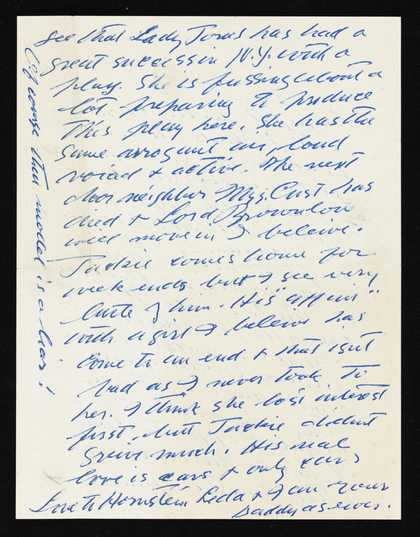 see that Lady Jones has had a
great success in N.Y. with a
play. She is fussing about a
lot preparing to produce
this play here. She has the
same arrogant air, loud
voiced & active. The next
door neighbor Mrs. Cust has
died & Lord Brownlow
will move in I believe.
Jackie comes home for
week ends but I see very
little of him. His "affair"
with a girl I believe has
come to an end & that isn't
bad as I never took to
her. I think she lost interest
first, but Jackie didn't
grieve much. His real
love is cars & only cars
Love to Hornstein Leda & I am your
Daddy as ever.
(Of course that model is a bear!